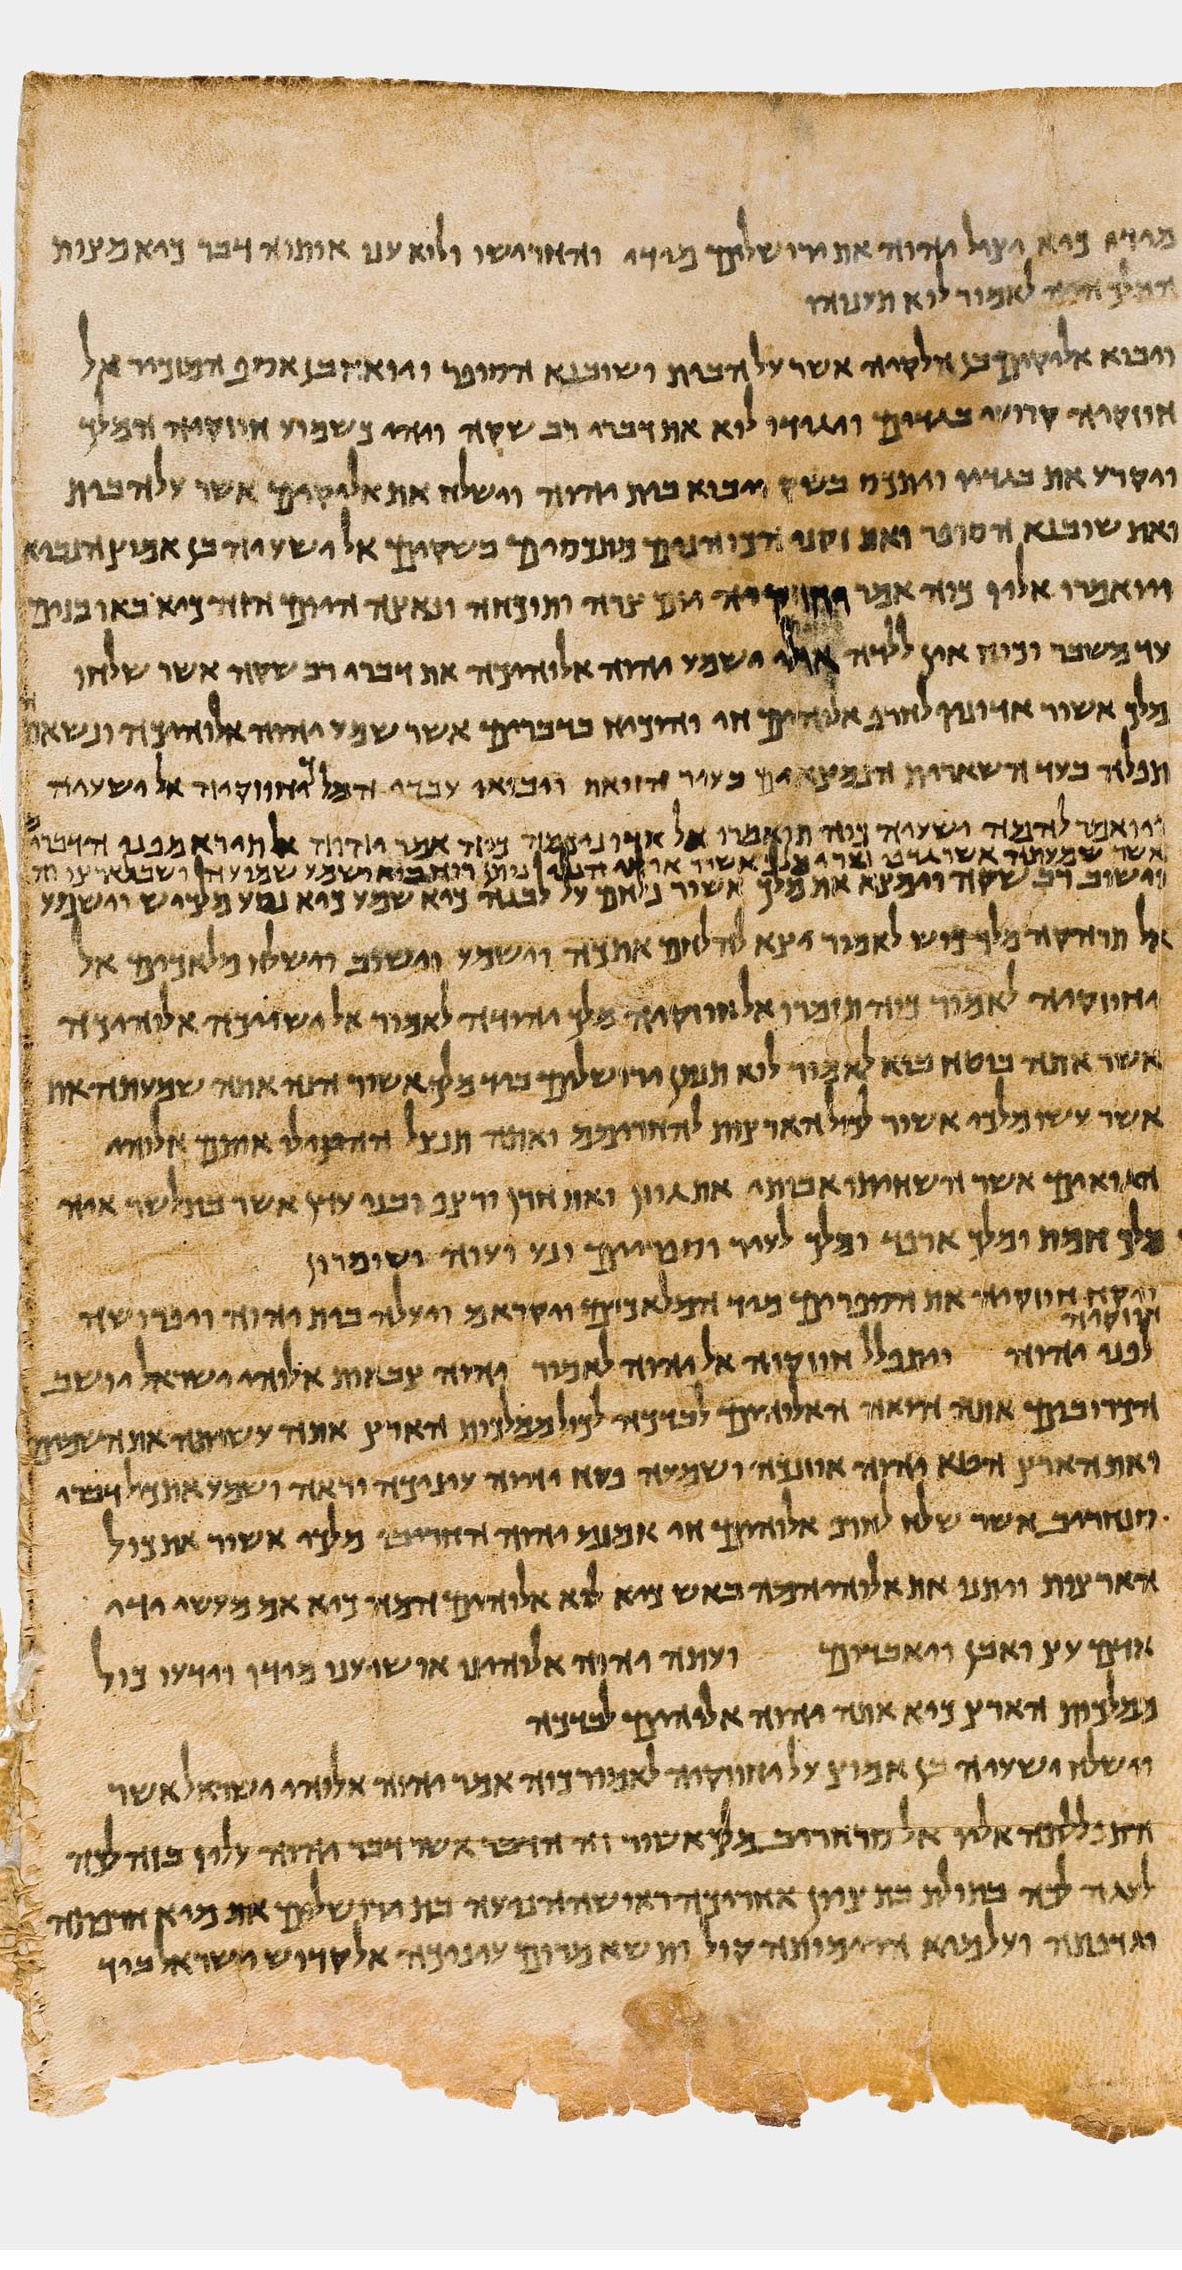 מידי כיא יציל יהוה את ירושלים מידי והחרישו ולוא ענו אותוה דבר כיא מצות
המלך היאה לאמור לוא תענוהו
ויבוא אליקים בן חלקיה אשר על הבית ושובנא הסופר ויואח בן אסף המזכיר אל
חוזקיה קרועי בגדים ויגידו לוא את דברי רב שקה ויהי כשמוע חוזקיה המלך
ויקרע את בגדיו ויתכס בשק ויבוא בית יהוה וישלח את אליקים אשר על הבית
ואת שובנא הסופר ואת זקני הכוהנים מתכסים בשקים אל ישעיה בן אמוץ הנביא
ויואמרו אליו כוה אמר יום צרה ותוכחה ונאצה היום הזה כיא באו בנים
עד משבר וכוח אין ללדה אולי ישמע יהוה אלוהיכה את דברי רב שקה אשר שלחו
מלך אשור אדוניו לחרף אלוהים חי והוכיח בדברים אשר שמע יהוה אלוהיכה ונשאתה
תפלה בעד השארית הנמצאים בעיר הזואת ויבואו עבדי המלך יחוזקיה אל ישעיה
ויואמר להמה ישעיה כוה תואמרו אל אדוניכמה כוה אמר יהוה אל תירא מפני הדברים
אשר שמעתה אשר גדפו נערי מלך אשור אותי רוח בוא ושמע שמועה ושב לארצו
וישוב רב שקה וימצא את מלך אשור נלחם על לבנה כיא שמע כיא נסע מלכיש וישמע
אל תרהקה מלך כוש לאמור יצא להלחם אתכה וישמע וישוב וישלח מלאכים אל
יחוזקיה לאמור כוה תומרו אל חוזקיה מלך יהודה לאמור אל ישיאכה אלוהיכה
אשר אתה בוטח בוא לאמור לוא תנתן ירושלים ביד מלך אשור הנה אתה שמעתה את
אשר עשו מלכי אשור לכול הארצות להחרימם ואתה תנצל ההצילו אותם אלוהי
הגואים אשר השחיתו אבותי את גוזן ואת חרן ורצף ובני עדן אשר בתלשר איה
מלך חמת ומלך ארפד ומלך לעיר ונע ועוה ושומרון
ויקח חוזקיה את הספרים מיד המלאכים ויקראם ויעלה בית יהוה ויפרושה
חוזקיה
לפני יהוה ויתפלל חוזקיה אל יהוה לאמור יהוה צבאות אלוהי ישראל יושב
הכרובים אתה הואה האלוהים לבדכה לכול ממלכות הארץ אתה עשיתה את השמים
ואת הארץ הטא יהוה אוזנכה ושמעה פקח יהוה עיניכה וראה ושמע את כול דברי
סנחריב אשר שלח לחרף אלוהים חי אמנם יהוה החריבו מלכי אשור את כול
הארצות ויתנו את אלוהיהמה באש כיא לוא אלוהים המה כיא אם מעשי ידי
אדם עץ ואבן ויאבדום ועתה יהוה אלוהינו הושיענו מידו וידעו כול
ממלכות הארץ כיא אתה יהוה אלוהים לבדכה
וישלח ישעיה בן אמוץ על יחוזקיה לאמור כוה אמר יהוה אלוהי ישראל אשר
התפללתה אליו אל סנחריב מלך אשור זה הדבר אשר דבר יהוה עליו בזה לכה
לעגה לכה בתולת בת ציון אחריכה ראושה הניעה בת ירושלים את מיא חרפתה
וגדפתה ועל מיא הרימותה קול ותשא מרום עיניכה אל קדוש ישראל ביד